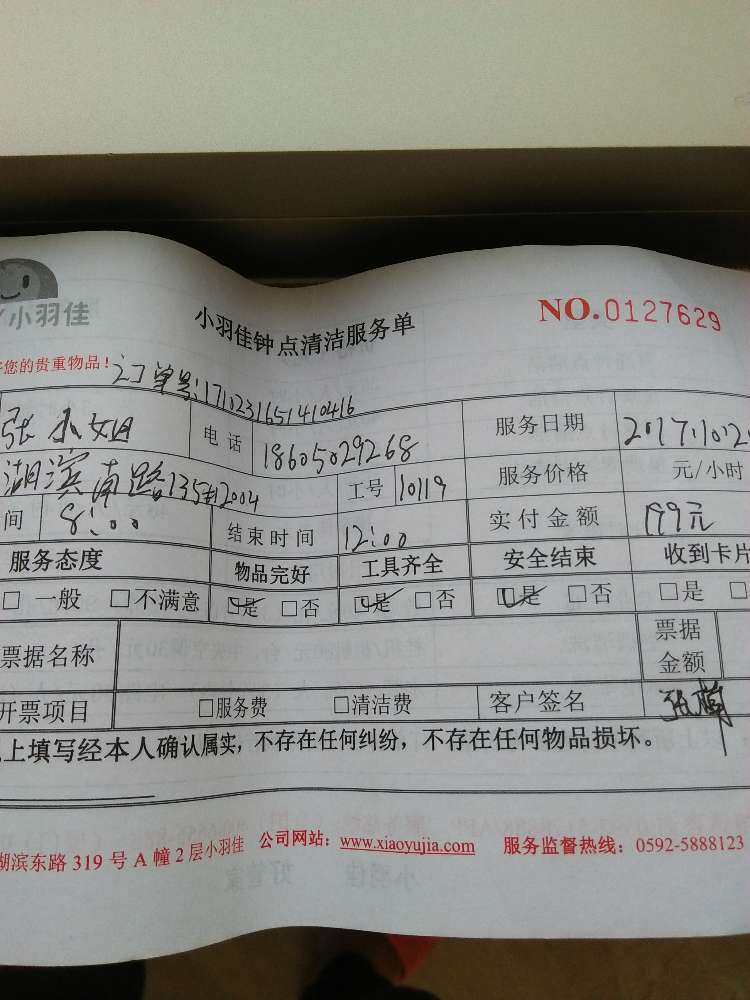 小羽佳
小羽佳钟点清洁服务单
NO.0127629
您的贵重物品！订单号:1710231651410416
张小姐 电话 18605029268 服务日期 2017.10.2
湖滨南路135#2004 工号 10119 服务价格 元/小时
间 8:00 结束时间 12:00 实付金额 199元
服务态度 物品完好 工具齐全 安全结束 收到卡片
□ 一般 □不满意 ☑是 □否 ☑是 □否 ☑是 □否 □是 □
票据名称 票据金额
开票项目 □服务费 □清洁费 客户签名
上填写经本人确认属实，不存在任何纠纷，不存在任何物品损坏。
湖滨东路 319 号 A 幢 2 层小羽佳 公司网站：www.xiaoyujia.com 服务监督热线：0592-5888123